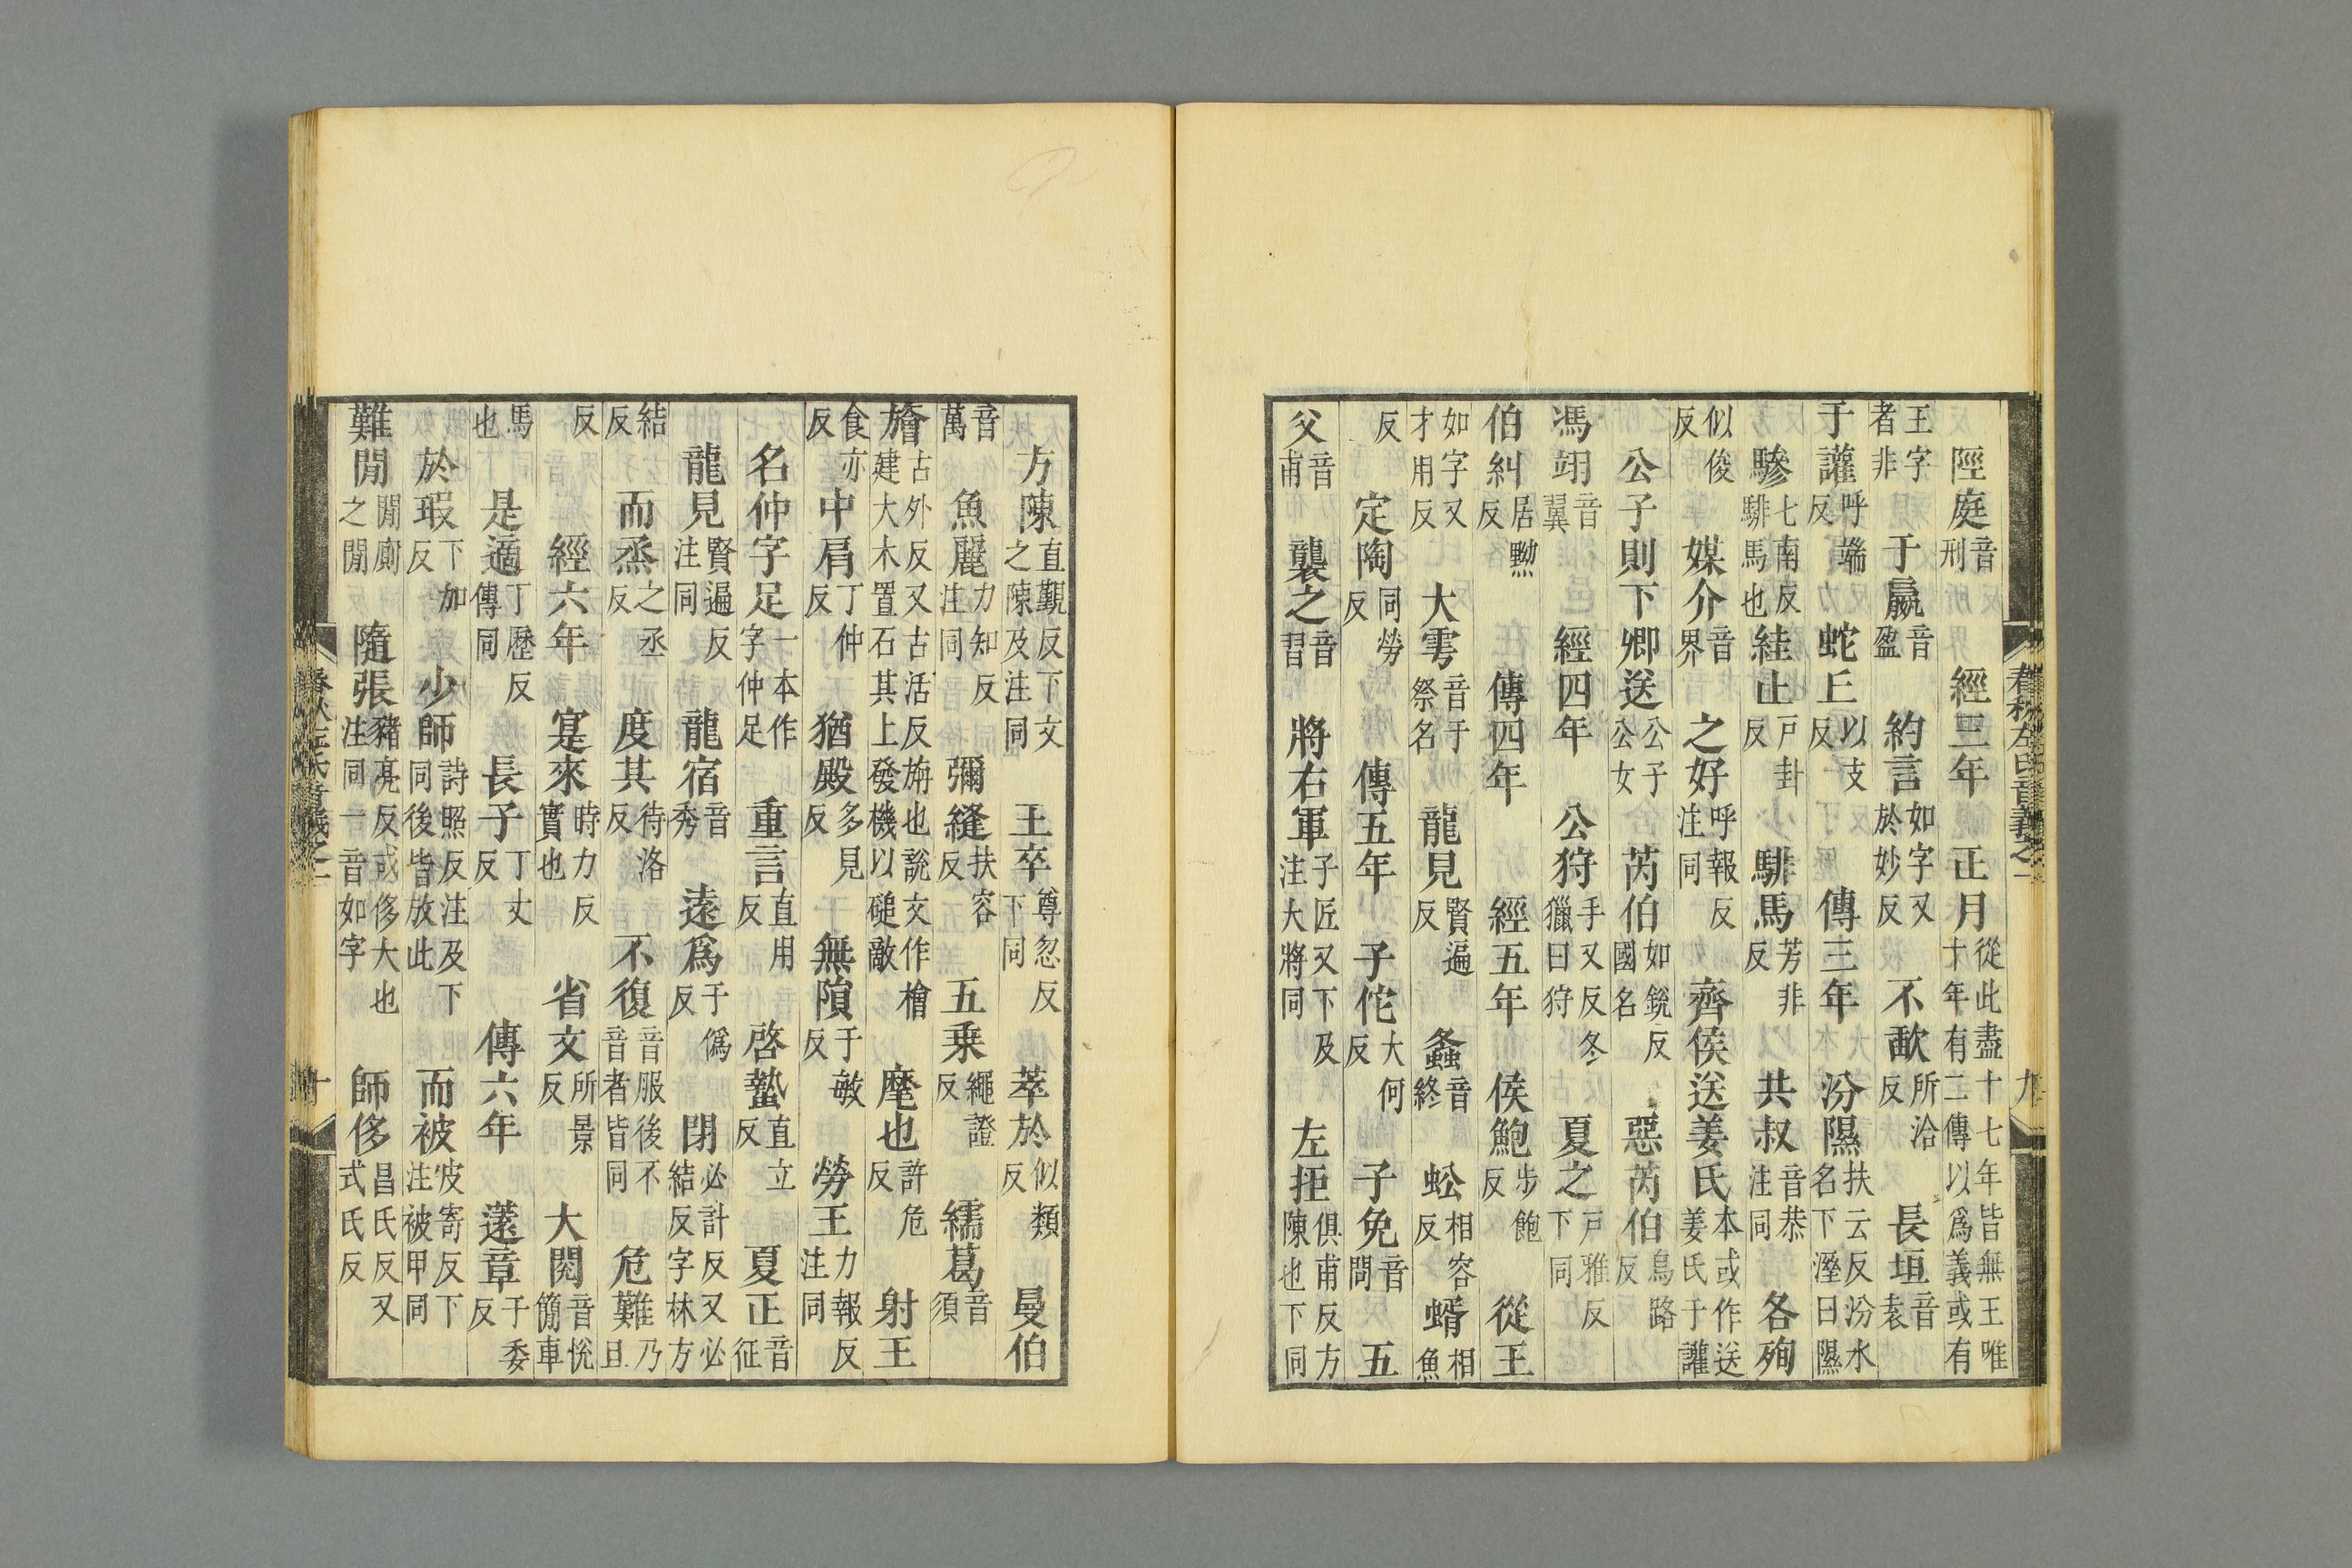 春秋左氏音義之一
九
陘庭音刑　經三年　正月從此盡十七年皆無王唯十年有二傳以爲義或有
王字者非　于嬴音盈　約言如字又於妙反　不歃所洽反　長垣音袁
于讙呼端反　蛇丘以支反　傳三年　汾隰扶云反汾水名下溼曰隰
驂七南反騑馬也　絓止戶卦反　騑馬芳非反　共叔音恭注同　各殉
似俊反　媒介音界　之好呼報反注同　齊侯送姜氏本或作送姜氏于讙
公子則下卿送公子公女　芮伯如銳反國名　惡芮伯烏路反
馮翊音翼　經四年　公狩手又反冬獵曰狩　夏之戶雅反下同
伯糾居黝反　傳四年　經五年　侯鮑步飽反　從王
如字又才用反　大雩音于祭名　龍見賢遍反　螽音終　蚣相容反　蝑相魚
反　定陶同勞反　傳五年　子佗大何反　子免音問　五
父音甫　襲之音習　將右軍子匠反又下及注大將同　左拒俱甫反方陳也下同
方陳直覲反下文之陳及注同　王卒尊忽反下同　萃於似類反　曼伯
音萬　魚麗力知反注同　彌縫扶容反　五乗繩證反　繻葛音須
旝古外反又古活反旃也說文作檜建大木置石其上發機以磓敵　麾也許危反　射王
食亦反　中肩丁仲反　猶殿多見反　無隕于敏反　勞王力報反注同
名仲字足一本作字仲足　重言直用反　啓蟄直立反　夏正音征
龍見賢遍反注同　龍宿音秀　遠爲于僞反　閉必計反又必結反字林方
結反　而烝之丞反　度其待洛反　不復音服後不音者皆同　危難乃旦
反　經六年　寔來時力反實也　省文所景反　大閱音悅簡車
馬也　是適丁歷反傳同　長子丁丈反　傳六年　薳章于委反
於瑕下加反　少師詩照反注及下同後皆放此　而被皮寄反下注被甲同
難閒閒廁之閒　隨張豬亮反或侈大也注同一音如字　師侈昌氏反又式氏反
春秋左氏音義之一
十